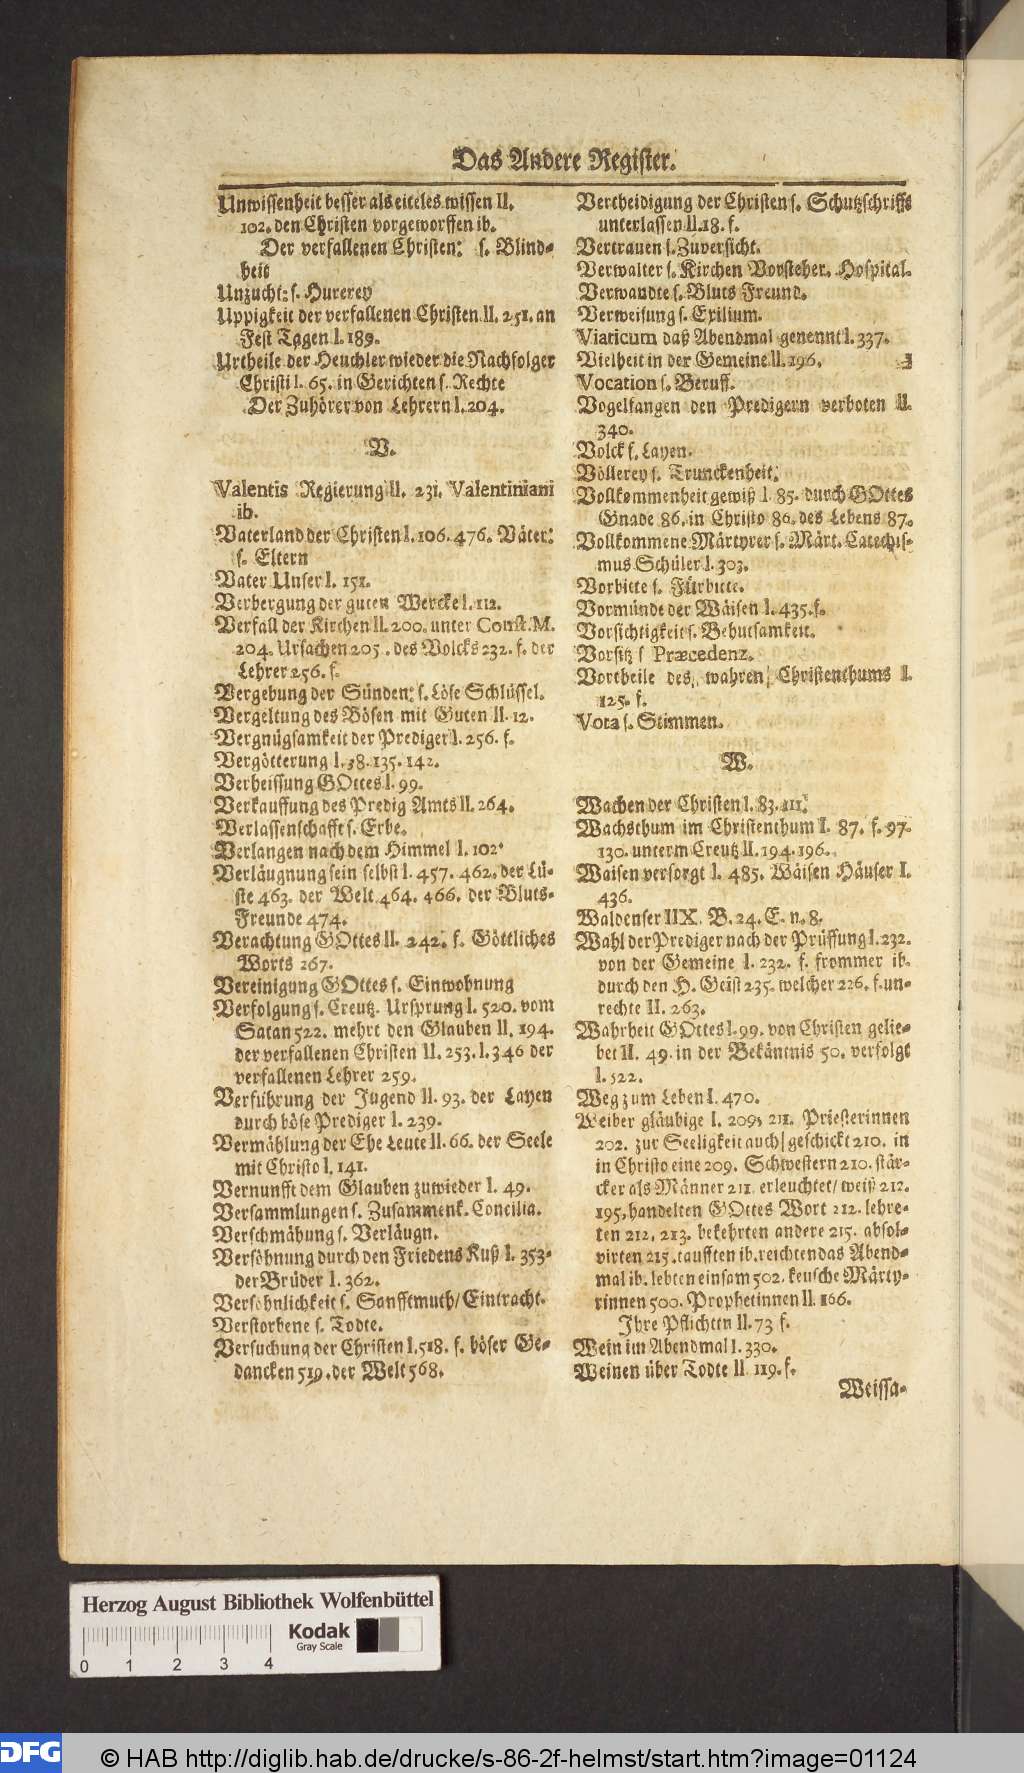 Das Andere Register.
Unwissenheit besser als eiteles wissen II.
102. den Christen vorgeworffen ib.
Der verfallenen Christen: s. Blind-
heit
Unzucht: s. Hurerey
Uppigkeit der verfallenen Christen II. 251. an
Fest Tagen I. 189.
Urtheile der Heuchler wieder die Nachfolger
Christi I. 65. in Gerichten s. Rechte
Der Zuhörer von Lehrern I. 204.
V.
Valentis Regierung II. 231. Valentiniani
ib.
Vaterland der Christen I. 106. 476. Väter:
s. Eltern
Vater Unser I. 151.
Verbergung der guten Wercke I. 112.
Verfall der Kirchen II. 200. unter Const. M.
204. Ursachen 205. des Volcks 232. f. der
Lehrer 256. f.
Vergebung der Sünden: s. Löse Schlüssel.
Vergeltung des Bösen mit Guten II. 12.
Vergnügsamkeit der Prediger I. 256. f.
Vergötterung I. 38. 135. 142.
Verheissung GOttes I. 99.
Verkauffung des Predig Amts II. 264.
Verlassenschafft s. Erbe.
Verlangen nach dem Himmel I. 102.
Verläugnung sein selbst I. 457. 462. der Lü-
ste 463. der Welt 464. 466. der Bluts-
Freunde 474.
Verachtung GOttes II. 242. f. Göttliches
Worts 267.
Vereinigung GOttes s. Einwohnung
Verfolgung s. Creutz. Ursprung I. 520. vom
Satan 522. mehrt den Glauben II. 194.
der verfallenen Christen II. 253. I. 346 der
verfallenen Lehrer 259.
Verführung der Jugend II. 93. der Layen
durch böse Prediger I. 239.
Vermählung der Ehe Leute II. 66. der Seele
mit Christo I. 141.
Vernunfft dem Glauben zuwieder I. 49.
Versammlungen s. Zusammenk. Concilia.
Verschmähung s. Verläugn.
Versöhnung durch den Friedens Kuß I. 353.
der Brüder I. 362.
Versöhnlichkeit s. Sanfftmuth/ Eintracht.
Verstorbene s. Todte.
Versuchung der Christen I. 518. f. böser Ge-
dancken 519. der Welt 568.
Vertheidigung der Christen s. Schutzschrifft
unterlassen II. 18. f.
Vertrauen s. Zuversicht.
Verwalter s. Kirchen Vorsteher. Hospital.
Verwandte s. Bluts Freund.
Verweisung s. Exilium.
Viaticum daß Abendmal genennt I. 337.
Vielheit in der Gemeine II. 196.
Vocation s. Beruff.
Vogelfangen den Predigern verboten II.
340.
Volck s. Layen.
Völlerey s. Trunckenheit.
Vollkommenheit gewiß I. 85. durch GOttes
Gnade 86. in Christo 86. des Lebens 87.
Vollkommene Märtyrer s. Märt. Catechis-
mus Schüler I. 303.
Vorbitte s. Fürbitte.
Vormünde der Wäisen I. 435. f.
Vorsichtigkeit s. Behutsamkeit.
Vorsitz s Præcedenz.
Vortheile des wahren Christenthums I.
125. f.
Vota s. Stimmen.
W.
Wachen der Christen I. 83. 111.
Wachsthum im Christenthum I. 87. f. 97.
130. unterm Creutz II. 194. 196.
Waisen versorgt I. 485. Wäisen Häuser I.
436.
Waldenser IIX. B. 24. E. n. 8.
Wahl der Prediger nach der Prüffung I. 232.
von der Gemeine I. 232. f. frommer ib.
durch den H. Geist 235. welcher 226. f. un-
rechte II. 263.
Wahrheit GOttes I. 99. von Christen gelie-
bet II. 49. in der Bekäntnis 50. verfolgt
I. 522.
Weg zum Leben I. 470.
Weiber gläubige I. 209. 211. Priesterinnen
202. zur Seeligkeit auch geschickt 210. in
in Christo eine 209. Schwestern 210. stär-
cker als Männer 211. erleuchtet/ weiß 212.
195. handelten GOttes Wort 212. lehre-
ten 212. 213. bekehrten andere 215. absol-
virten 215. taufften ib. reichten das Abend-
mal ib. lebten einsam 502. keusche Märty-
rinnen 500. Prophetinnen II. 166.
Ihre Pflichten II. 73 f.
Wein im Abendmal I. 330.
Weinen über Todte II 119. f.
Weissa-
Herzog August Bibliothek Wolfenbüttel
Kodak
Gray Scale
0 1 2 3 4
DFG
© HAB http://diglib.hab.de/drucke/s-86-2f-helmst/start.htm?image=01124